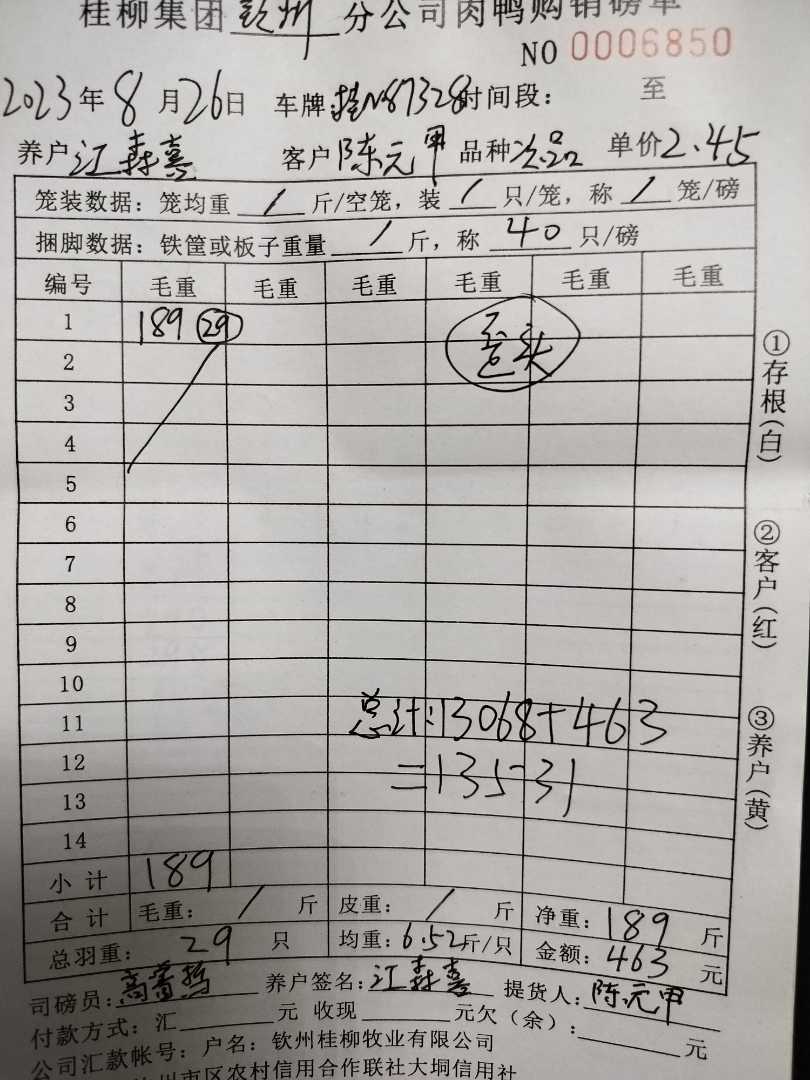 桂柳集团钦州分公司肉鸭购销磅单
NO 0006850
2023年8月26日 车牌:桂N87328时间段: 至
养户江森喜 客户陈元甲 品种次品 单价2.45
笼装数据: 笼均重 / 斤/空笼, 装 / 只/笼, 称 / 笼/磅
捆脚数据: 铁筐或板子重量 / 斤, 称 40 只/磅
编号 毛重 毛重 毛重 毛重 毛重 毛重
1 189 29
2
3
4
5
6
7
8
9
10
11 总计:13068+463
12 =13531
13
14
小计 189
合计 毛重: / 斤 皮重: / 斤 净重: 189 斤
总羽重: 29 只 均重: 6.52斤/只 金额: 463 元
司磅员: 养户签名: 江森喜 提货人: 陈元甲
付款方式: 汇 元 收现 元欠(余): 元
公司汇款帐号: 户名: 钦州桂柳牧业有限公司
州市区农村信用合作联社大垌信用社
①存根(白)
②客户(红)
③养户(黄)